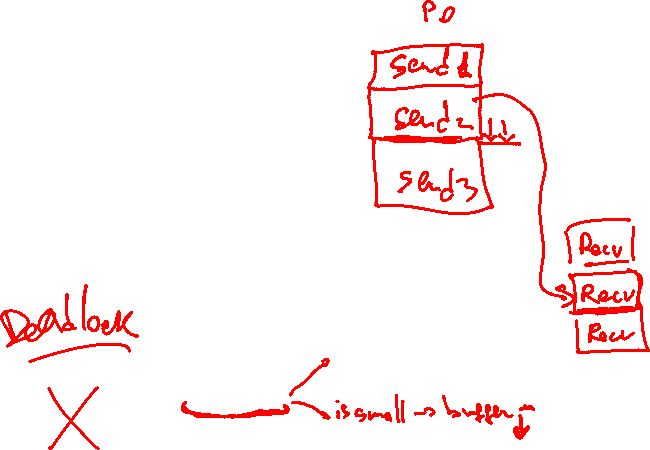 P0
Send1
Send2
Send3
Recv
Recv
Recv
Deadlock
is small → buffer